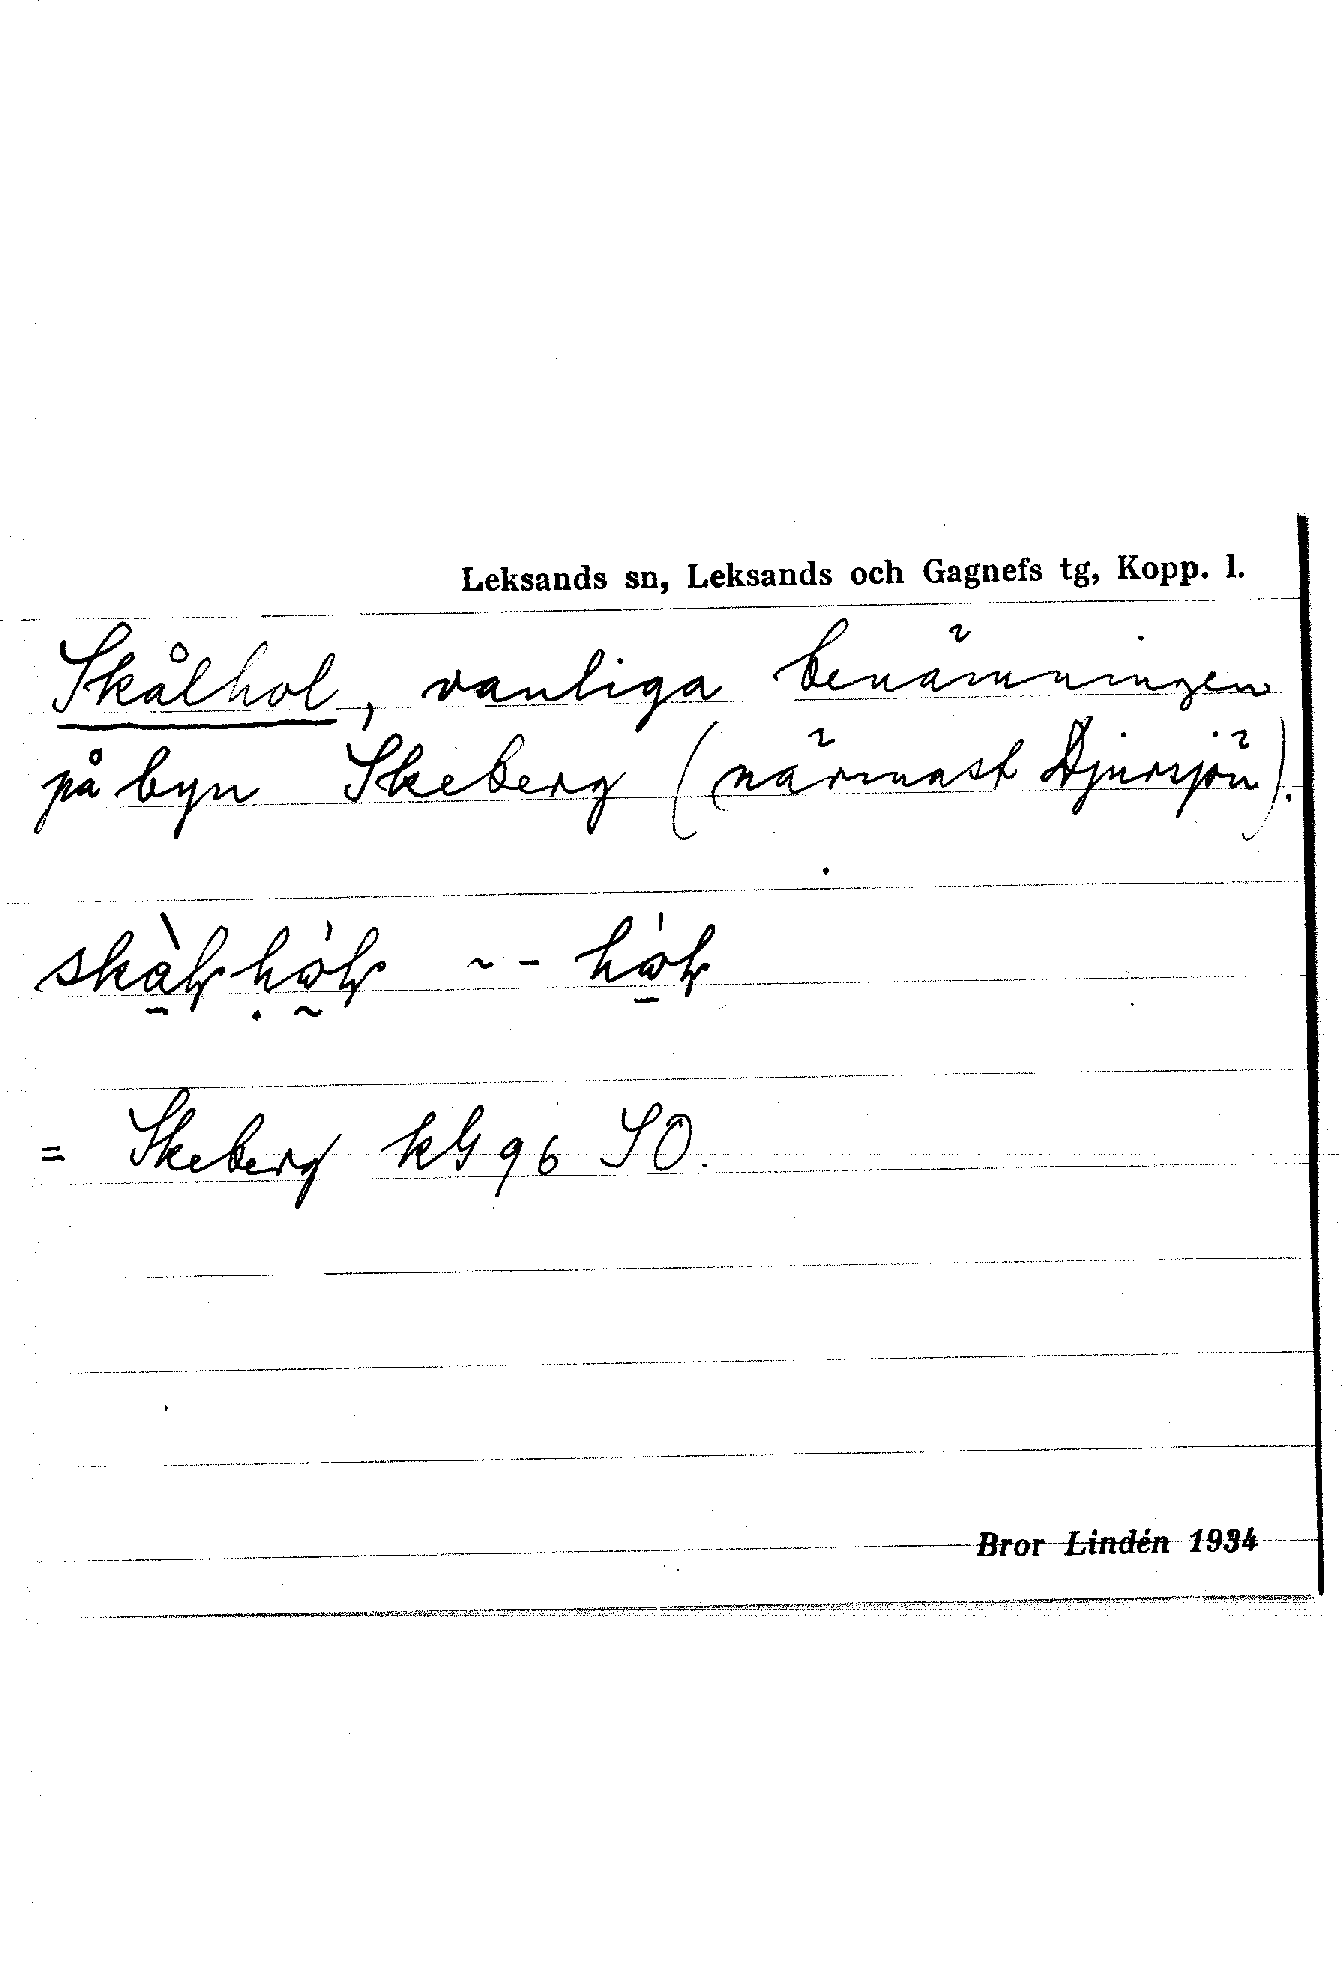 Leksands sn, Leksands och Gagnefs tg, Kopp. l.
Skålhol, vanliga benämningen
på byn Skeberg (närmast Djursjön).
= Skeberg kG 96 SO.
Bror Lindén 1934